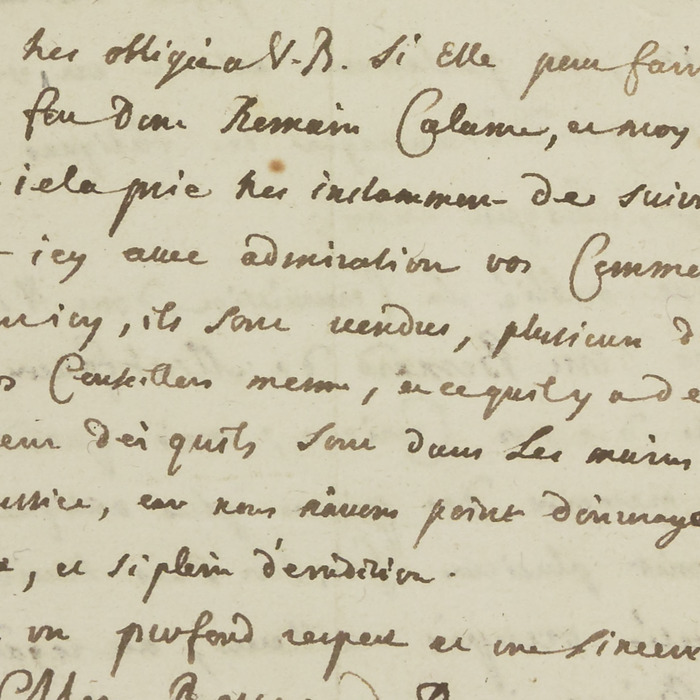 tres obligé a V. R. si Elle peu fair
feu Dom Remain Calame, et moy
ie la prie tres instammen de suiv
icy avec admiration vos Comme
icy, ils sont vendus, plusieur d
Conseillers mesme, et ce quil y a de
dei quils sont dans Les mains
ustice, car nous n'avons point d'ouvrage
, et si plein d'erudition.
un profond respect et une sincer